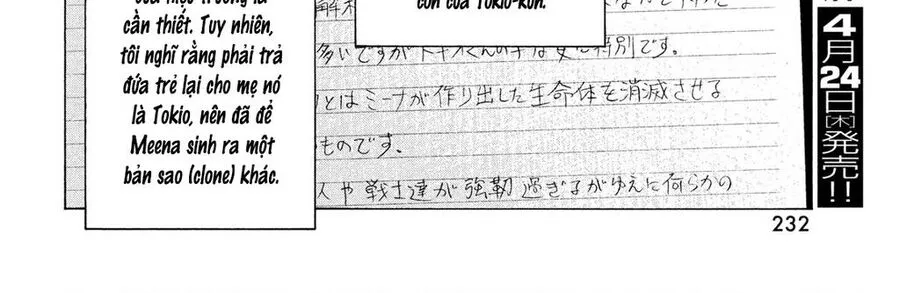 cần thiết. Tuy nhiên,
tôi nghĩ rằng phải trả
đứa trẻ lại cho mẹ nó
là Tokio, nên đã để
Meena sinh ra một
bản sao (clone) khác.
con của Tokio-kun.
多いですがトキオくんの子は更に特別です。
とはミーナが作り出した生命体を消滅させる
ものです。
人や戦士達が強靭過ぎるがゆえに何らかの
4月24日(木)発売!!
232